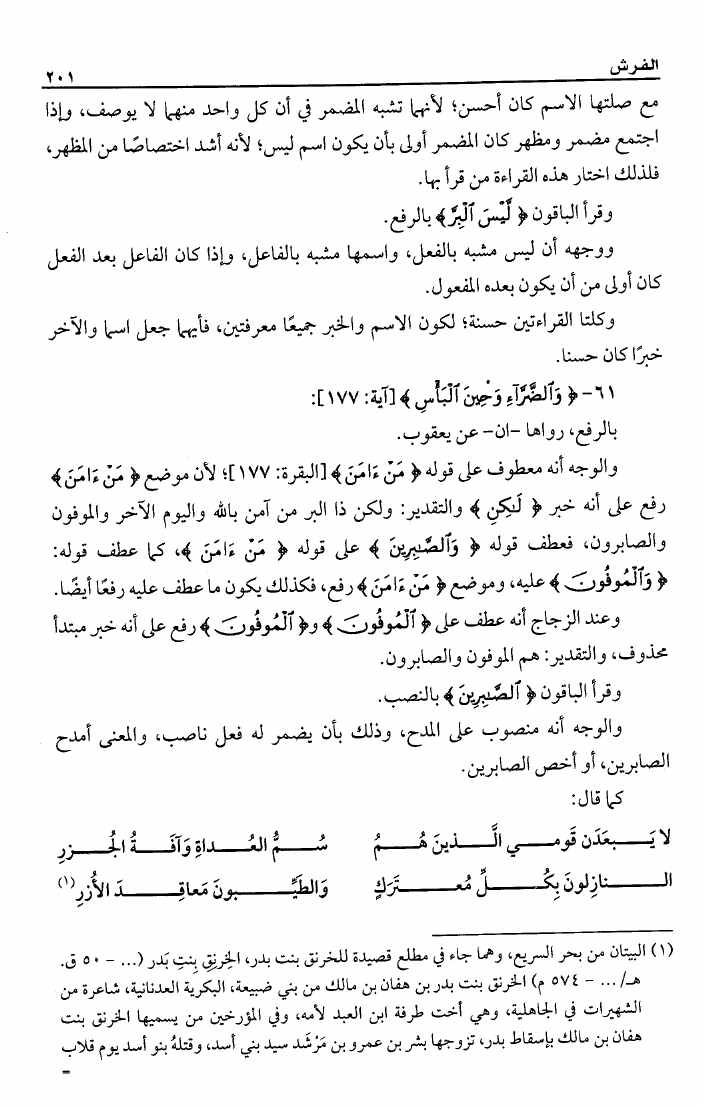 الفرش ٢٠١
مع صلتها الاسم كان أحسن؛ لأنهما تشبه المضمر في أن كل واحد منهما لا يوصف، وإذا
اجتمع مضمر ومظهر كان المضمر أولى بأن يكون اسم ليس؛ لأنه أشد اختصاصًا من المظهر،
فلذلك اختار هذه القراءة من قرأ بها.
وقرأ الباقون ﴿ لَّيْسَ ٱلْبِرُّ ﴾ بالرفع.
ووجهه أن ليس مشبه بالفعل، واسمها مشبه بالفاعل، وإذا كان الفاعل بعد الفعل
كان أولى من أن يكون بعده المفعول.
وكلتا القراءتين حسنة؛ لكون الاسم والخبر جميعًا معرفتين، فأيهما جعل اسما والآخر
خبرًا كان حسنا.
٦١- ﴿ وَٱلضَّرَّآءِ وَحِينَ ٱلْبَأْسِ ﴾ [آية: ١٧٧]:
بالرفع، رواها -ان- عن يعقوب.
والوجه أنه معطوف على قوله ﴿ مَنْ ءَامَنَ ﴾ [البقرة: ١٧٧]؛ لأن موضع ﴿ مَنْ ءَامَنَ ﴾
رفع على أنه خبر ﴿ لَٰكِنِ ﴾ والتقدير: ولكن ذا البر من آمن بالله واليوم الآخر والموفون
والصابرون، فعطف قوله ﴿ وَٱلصَّٰبِرِينَ ﴾ على قوله ﴿ مَنْ ءَامَنَ ﴾، كما عطف قوله:
﴿ وَٱلْمُوفُونَ ﴾ عليه، وموضع ﴿ مَنْ ءَامَنَ ﴾ رفع، فكذلك يكون ما عطف عليه رفعًا أيضًا.
وعند الزجاج أنه عطف على ﴿ ٱلْمُوفُونَ ﴾ و﴿ ٱلْمُوفُونَ ﴾ رفع على أنه خبر مبتدأ
محذوف، والتقدير: هم الموفون والصابرون.
وقرأ الباقون ﴿ ٱلصَّٰبِرِينَ ﴾ بالنصب.
والوجه أنه منصوب على المدح، وذلك بأن يضمر له فعل ناصب، والمعنى أمدح
الصابرين، أو أخص الصابرين.
كما قال:
لا يَبعَدَن قَومي الَّذينَ هُمُ سُمُّ العُداةِ وَآفَةُ الجُزرِ
النازِلونَ بِكُلِّ مُعتَرَكٍ وَالطَيِّبونَ مَعاقِدَ الأُزرِ (١)
(١) البيتان من بحر السريع، وهما جاء في مطلع قصيدة للخرنق بنت بدر، الخِرنِق بِنتِ بَدر (... - ٥٠ ق.
هـ/ ... - ٥٧٤ م) الخرنق بنت بدر بن هفان بن مالك من بني ضبيعة، البكرية العدنانية، شاعرة من
الشهيرات في الجاهلية، وهي أخت طرفة ابن العبد لأمه، وفي المؤرخين من يسميها الخرنق بنت
هفان بن مالك بإسقاط بدر، تزوجها بشر بن عمرو بن مَرْثَد سيد بني أسد، وقتلهُ بنو أسد يوم قلاب
=